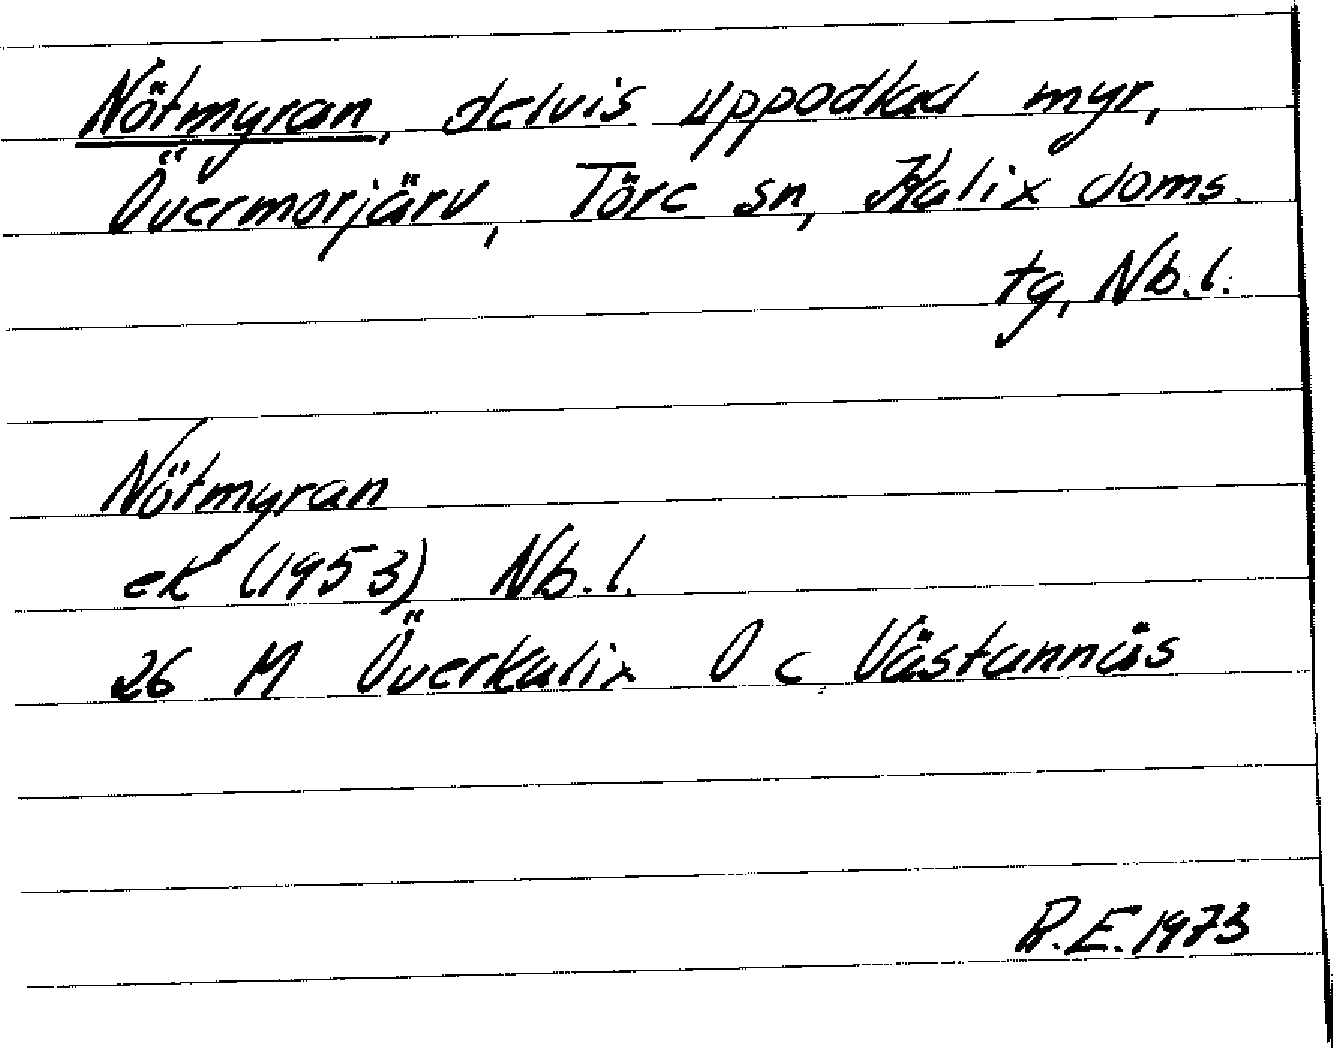 Nötmyran, delvis uppodlad myr,
Övermorjärv, Töre sn, Kalix doms.
tg, Nb.l.
Nötmyran
ek (1953) Nb.l.
26 M Överkalix O c Västannäs
R.E. 1973